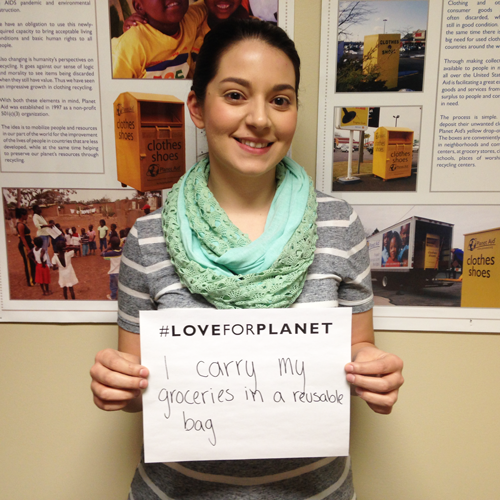 AIDS pandemic and environmental
destruction.
we have an obligation to use this newly-
capacity to bring acceptable living
conditions and basic human rights to all
people.
also changing is humanity's perspectives on
recycling. It goes against our sense of logic
and morality to see items being discarded
when they still have value. Thus we have seen
an expressive growth in clothing recycling.
With both these elements in mind, Planet
Aid was established in 1997 as a non-profit
501(c)(3) organization.
The idea is to mobilize people and resources
in our part of the world for the improvement
of the lives of people in countries that are less
developed, while at the same time helping
to preserve our planet's resources through
recycling.
clothes
shoes
Clothing and
consumer goods
often discarded,
still in good condition
the same time there is
big need for used clothes
countries around the w
Through making collec
available to people in
all over the United Stat
Aid is facilitating a great e
goods and services from
surplus to people and con
in need.
The process is simple
deposit their unwanted cl
Planet Aid's yellow drop-
The boxes are conveniently
in neighborhood and com
centers, at grocery stores, ch
schools, places of worsh
recycling centers.
clothes
shoes
clothes
shoes
Planet Aid
clothes
shoes
#LOVEFORPLANET
I carry my
groceries in a reusable
bag